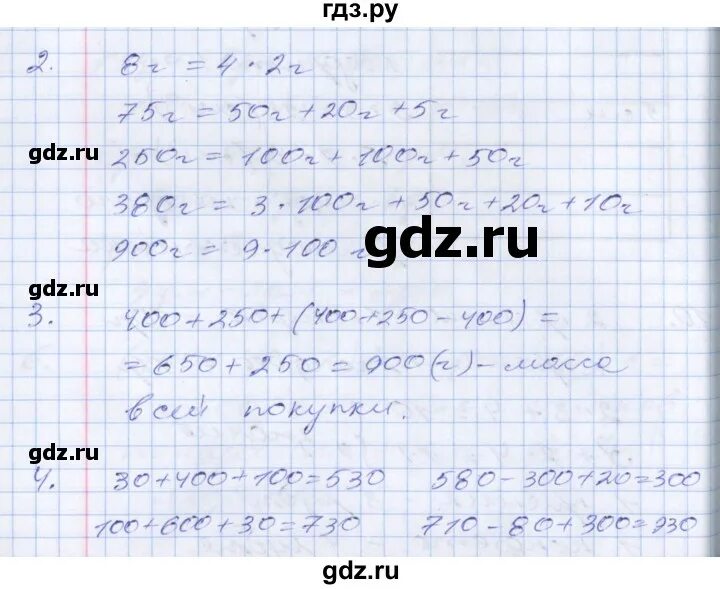 гдз.ру
2. 8г = 4 · 2г
75г = 50г + 20г + 5г
gdz.ru
250г = 100г + 100г + 50г
380г = 3 · 100г + 50г + 20г + 10г
gdz.ru
900г = 9 · 100 г
gdz.ru
3. 400 + 250 + (400 + 250 - 400) =
= 650 + 250 = 900 (г) - масса
всей покупки.
gdz.ru
4. 30 + 400 + 100 = 530 580 - 300 + 20 = 300
100 + 600 + 30 = 730 710 - 80 + 300 = 930
gdz.ru